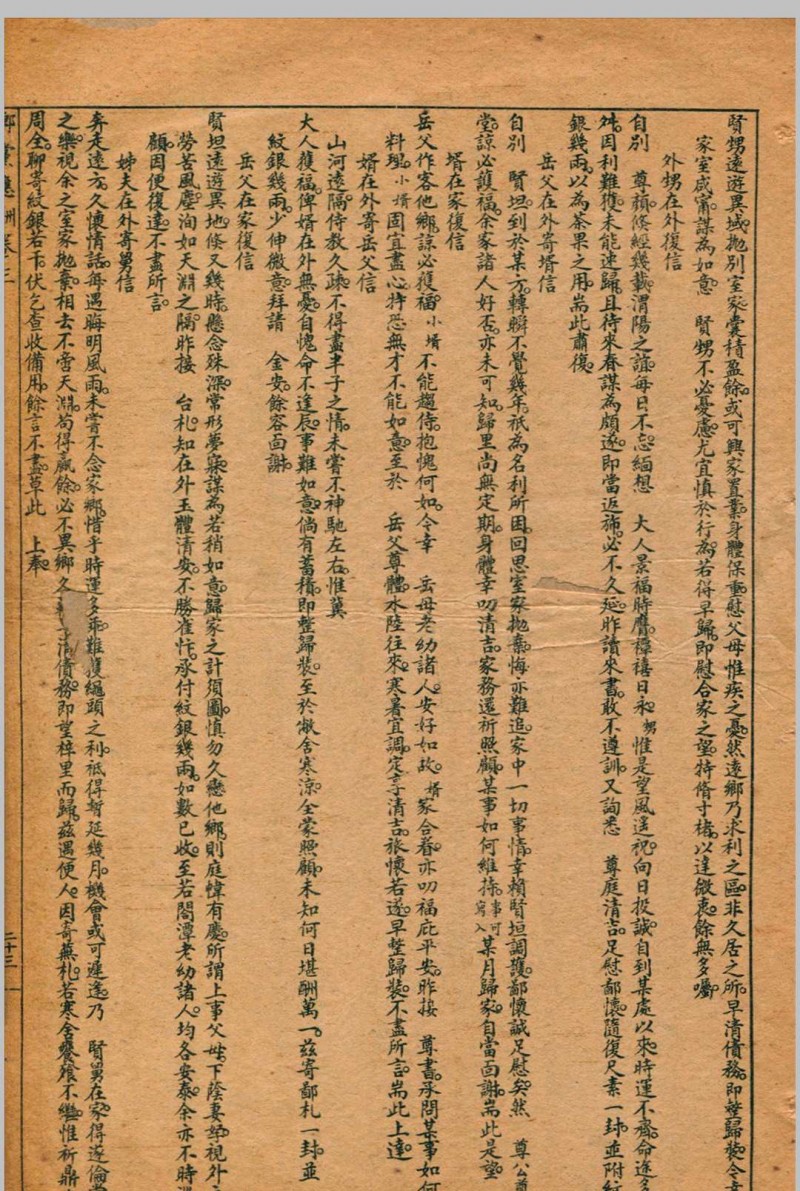 賢甥遠遊異域。拋別室家。囊積盈餘。或可興家置業。身體保重。慰父母惟疾之憂。然遠鄉乃求利之區。非久居之所。早清債務。即整歸裝。令
家室咸甯。謀為如意 賢甥不必憂慮。尤宜慎於行為。若得早歸。即慰合家之望。特脩寸楮。以達微衷。餘無多囑。
外甥在外復信
自別 尊顏。倏經幾載。渭陽之誼。每日不忘。緬想 大人景福時膺。禧日永。甥惟是望風遙祝。向日投誠。自到某處以來。時運不齊。命途多
舛。因利難獲。未能速歸。且待來春。謀為頗遂。即當返旆。必不久延。昨讀來書。敢不遵訓。又詢悉 尊庭清吉。足慰鄙懷。隨復尺素一封。並附紋
銀幾兩。以為茶菓之用。耑此肅復。
岳父在外寄壻信
自別 賢坦。到於某方。轉瞬不覺幾年。祇為名利所困。回思室家拋棄。悔亦難追。家中一切事情。幸賴賢坦調護。鄙懷誠足慰矣。然 尊公
堂。諒必護福。余家諸人好否。亦未可知。歸里尚無定期。身體幸叨清吉。家務還祈照顧。某事如何維持。事可寫入某月歸家。自當面謝。耑此是望
壻在家復信
岳父作客他鄉。諒必獲福。小壻不能趨侍。抱愧何如。令幸 岳母老幼諸人。安好如故。壻家合眷。亦叨福庇平安。昨接 尊書。承問某事如何
料理。小壻固宜盡心。特恐無才不能如意。至於 岳父尊體。水陸往來。寒暑宜調。定享清吉。旅懷若遂。早整歸裝。不盡所言。耑此上達。
壻在外寄岳父信
山河遠隔。侍教久疎。不得盡半子之情。未嘗不神馳左右。惟冀
大人獲福。俾壻在外無憂。自愧命不逢辰。事難如意。倘有蓄積。即整歸裝。至於敝舍寒涼。全蒙照顧。未知何日堪酬萬一。茲寄鄙札一封。並
紋銀幾兩。少伸微意。拜請 金安。餘容面謝。
岳父在家復信
賢坦遠遊異地。倏又幾時。懸念殊深。常形夢寐。謀為若稍如意。歸家之計須圖。慎勿久戀他鄉。則庭幃有慶。所謂上事父母。下蔭妻孥。視外
勞苦風塵。洵如天淵之隔。昨接 台札。知在外玉體清安。不勝雀忭。承付紋銀幾兩。如數已收。至若閤潭老幼諸人。均各安泰。余亦不時
顧。因便復達。不盡所言。
姊夫在外寄舅信
奔走遠方。久懷情話。每遇晦明風雨。未嘗不念家鄉。惜乎時運多乖。難獲蠅頭之利。祗得暫延幾月。機會或可遭逢。乃 賢舅在家。得遂倫
之樂。視余之室家拋棄。相去不啻天淵。苟得贏餘。必不異鄉久 清債務。即望梓里而歸。茲遇便人。因寄蕪札。若寒舍饔飧不繼。惟祈鼎
周全。聊寄紋銀若干。伏乞查收備用。餘言不盡。草此 上奉。
酬 三
二十三